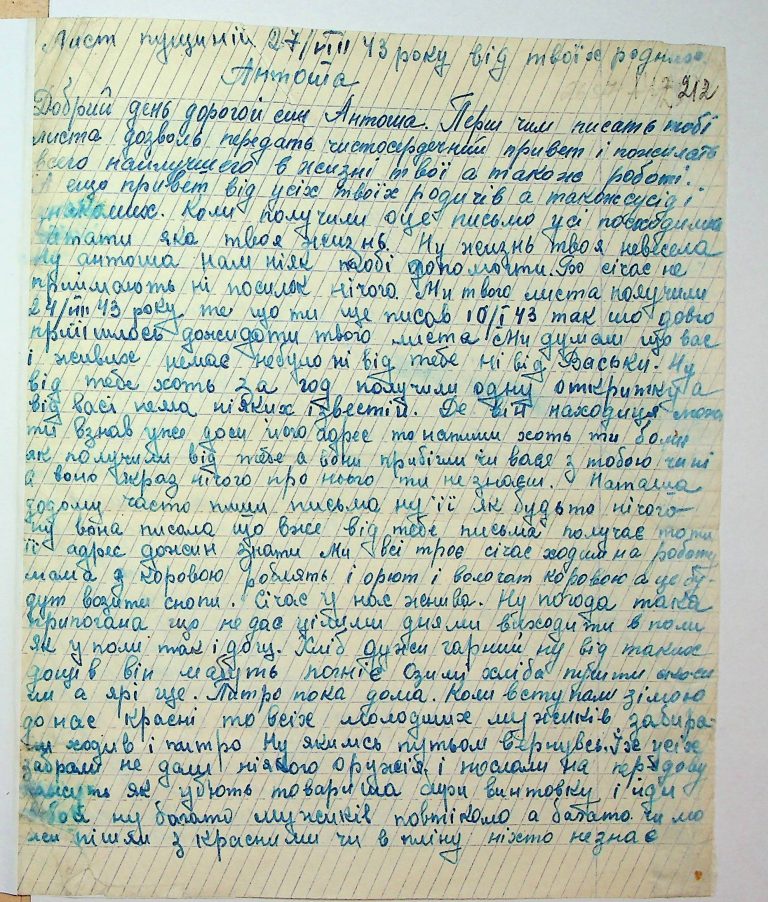 Лист пущиній 27/VIII 43 року від твоїх родних
Антоша
212
Добрий день дорогой син Антоша. Перш чим писать тобі
листа дозволь передать чистосердечний привет і пожилать
всего наилучшего в жизні твої а також роботі.
А ещо привет від усіх твоїх родичів а також сусід і
знакомих. Коли получили оце письмо усі посходились
читати яка твоя жизнь. Ну жизнь твоя невесела
Ну антоша нам ніяк тобі допомочти. Бо січас не
приймають ні посилок нічого. Ми твого листа получили
24/VIII 43 року те що ти ще писав 10/I 43 так шо довго
прийшлось дожидати твого листа Ми думали що вас
і живих немає небуло ні від тебе ні від Васьки. Ну
від тебе хоть за год получили одну откритку а
від васі нема ніяких ізвестій. Де він находиця може
ти взнав уже доси його адрес то напиши хоть ти
як получили від тебе а вони прибігли чи вася з тобою чи ні
а воно якраз нічого про нього ти не знаєш. Наташа
додому часто пише письма ну її як будьто нічого
Ну вона писала що вже від тебе письма получає то ти
її адрес должин знати Ми всі троє січас ходим на роботу
мама з коровою роблять і орют і волочат коровою а це бу-
дут возити снопи. Січас у нас жнива. Ну погода така
припогана що не дає цілими днями виходити в поли
як у поли так і дощ. Хліб дужи гарний ну від таких
дощів він мабуть погниє Озими хліба почти скоси
ли а ярі ще. Питро пока дома. Коли вступали зімою
до нас красні то всіх молодших мужиків забира-
ли ходив і питро Ну якимсь путьом вернувсь. Їх усіх
забрали не дали ніякого оружія і послали на передову
кажуть як убють товариша бири винтовку і йди
в бой ну багато мужиків повтікало а багато чи мо
же пішли з красними чи в пліну ніхто незнає